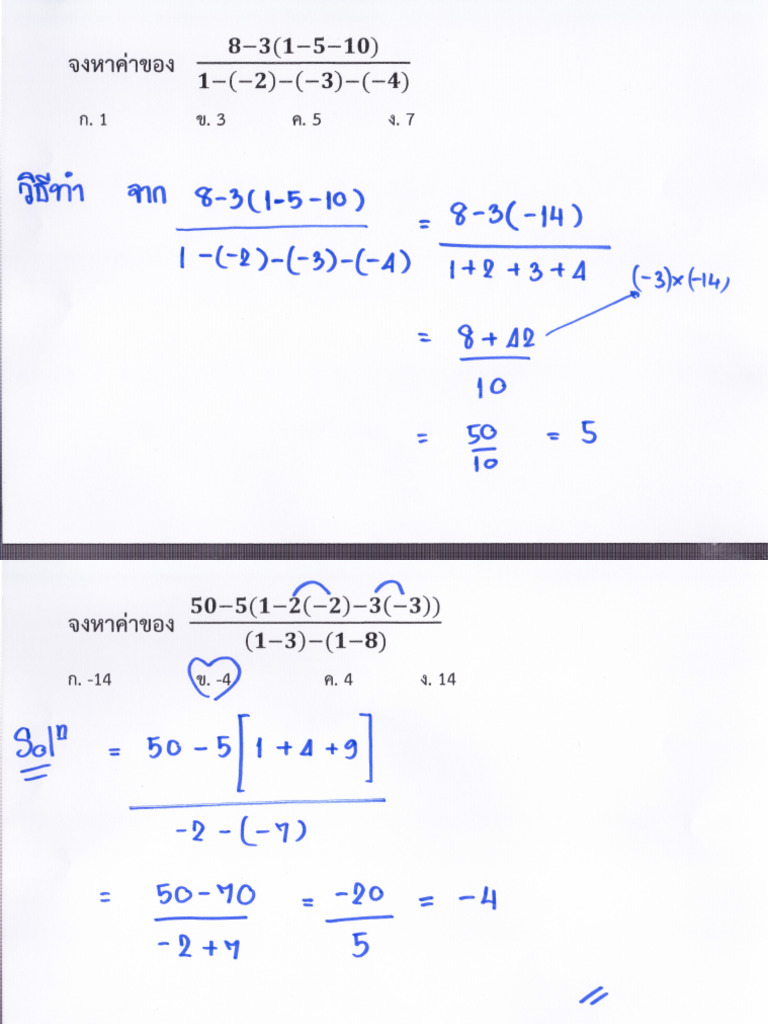 จงหาค่าของ 8−3(1−5−10) / 1−(−2)−(−3)−(−4)
ก. 1 ข. 3 ค. 5 ง. 7
วิธีทำ จาก 8-3(1-5-10) / 1-(-2)-(-3)-(-4) = 8-3(-14) / 1+2+3+4
(-3)×(-14)
= 8+42 / 10
= 50 / 10 = 5
จงหาค่าของ 50−5(1−2(−2)−3(−3)) / (1−3)−(1−8)
ก. -14 ข. -4 ค. 4 ง. 14
Solⁿ = 50-5[1+4+9] / -2-(-7)
= 50-70 / -2+7 = -20 / 5 = -4